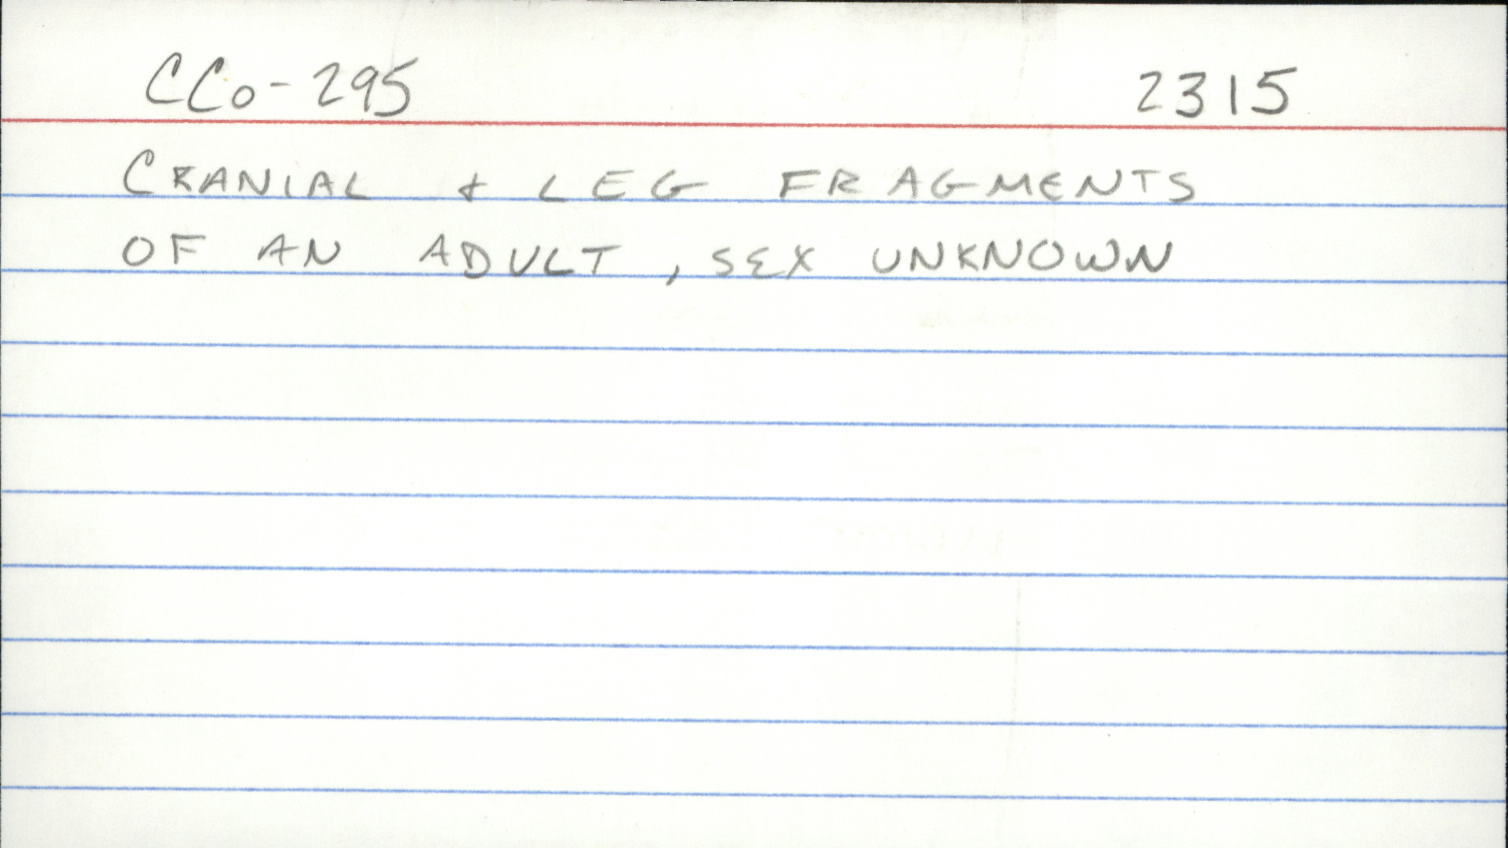 CCo-295 2315
CRANIAL & LEG FRAGMENTS
OF AN ADULT, SEX UNKNOWN